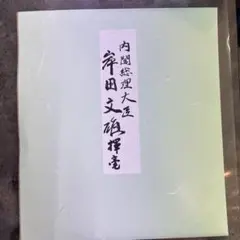 内閣総理大臣
岸田文雄揮毫